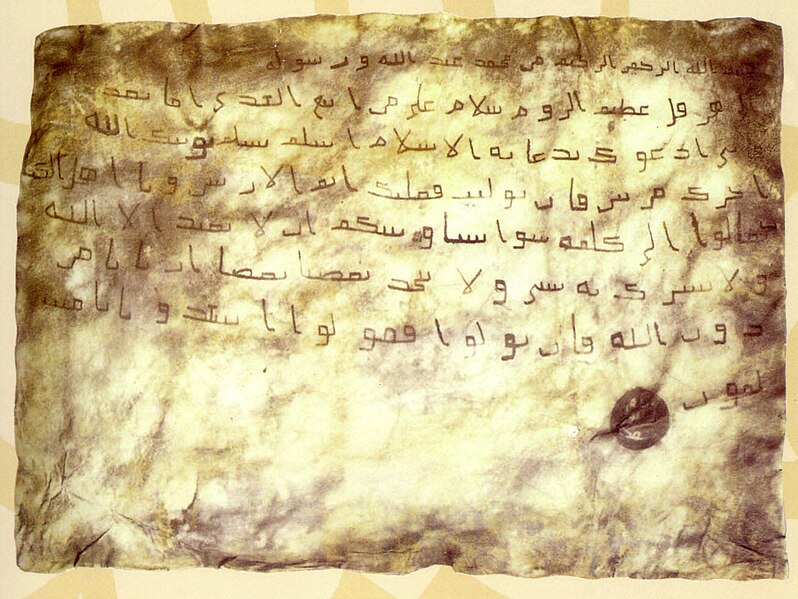 بسم الله الرحمن الرحيم من محمد عبد الله ورسوله
الى هرقل عظيم الروم سلام على من اتبع الهدى اما بعد
فانى ادعوك بدعاية الاسلام اسلم تسلم يوتك الله
اجرك مرتين فان توليت فعليك اثم الاريسين ويا اهل الك
تعالوا الى كلمة سوا بيننا وبينكم الا نعبد الا الله
ولا نشرك به شى ولا يتخذ بعضنا بعضا اربابا من
دون الله فان تولوا فقولوا اشهدوا بانا مسـ
لمون